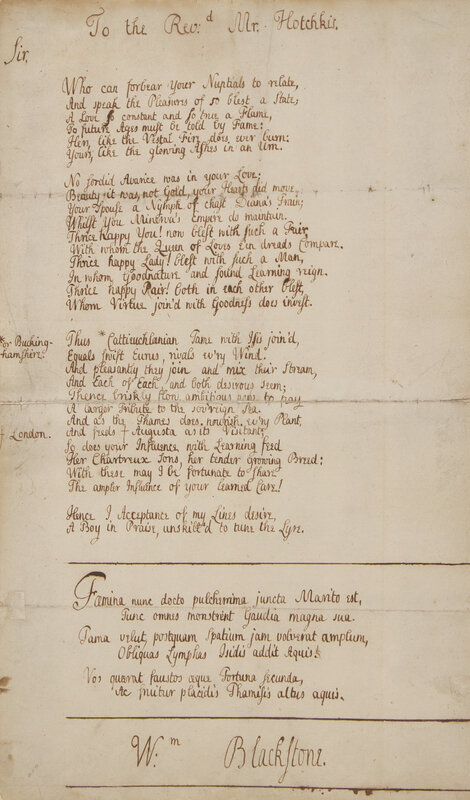 To the Rev.d Mr. Hotchkis.
Sir,
Who can forbear Your Nuptials to relate,
And speak the Pleasures of so blest a State;
A Love so constant and so true a Flame,
To future Ages must be told by Fame:
Her, like the Vestal Fire does ever burn:
Yours, like the glowing Ashes in an Urn.
No sordid Avarice was in your Love;
Beauty it was, not Gold, your Hearts did move,
Your Spouse a Nymph of chast Diana's Train;
Whilst You Minerva's Empire do maintain.
Thrice happy You! now blest with such a Fair,
With whom the Queen of Loves E'en dreads Compare.
Thrice happy Lady! blest with such a Man,
In whom Goodnature and sound Learning reign.
Thrice happy Pair! both in each other blest,
Whom Virtue join'd with Goodness does invest.
*or Bucking-
hamshire.
Thus *Cattieuchlanian Tame with Isis join'd,
Equals swift Eurus, rivals ev'ry Wind.
And pleasantly they join and mix their Stream,
And Each of Each, and both desirous seem;
Thence briskly flow, ambitious now to pay
A larger Tribute to the sovereign Sea.
And as the Thames does nourish ev'ry Plant,
† London.
And feeds † Augusta as its Visitant;
So does your Influence with Learning feed
Her Chartreux Sons, her tender growing Breed:
With these may I be fortunate to share
The ampler Influence of your learned Care!
Hence I Acceptance of my Lines desire,
A Boy in Praise, unskill'd to tune the Lyre.
Fæmina nunc docto pulcherrima juncta Marito est,
Tunc omnes monstrent Gaudia magna sua.
Tama velut, postquam spatium jam volverat amplum,
Obliquas Lymphas Isidis addit Aquis.
Vos quærat faustos æque Fortuna secunda,
Ac fruitur placidis Thamisis altus aquis.
W.m Blackstone.